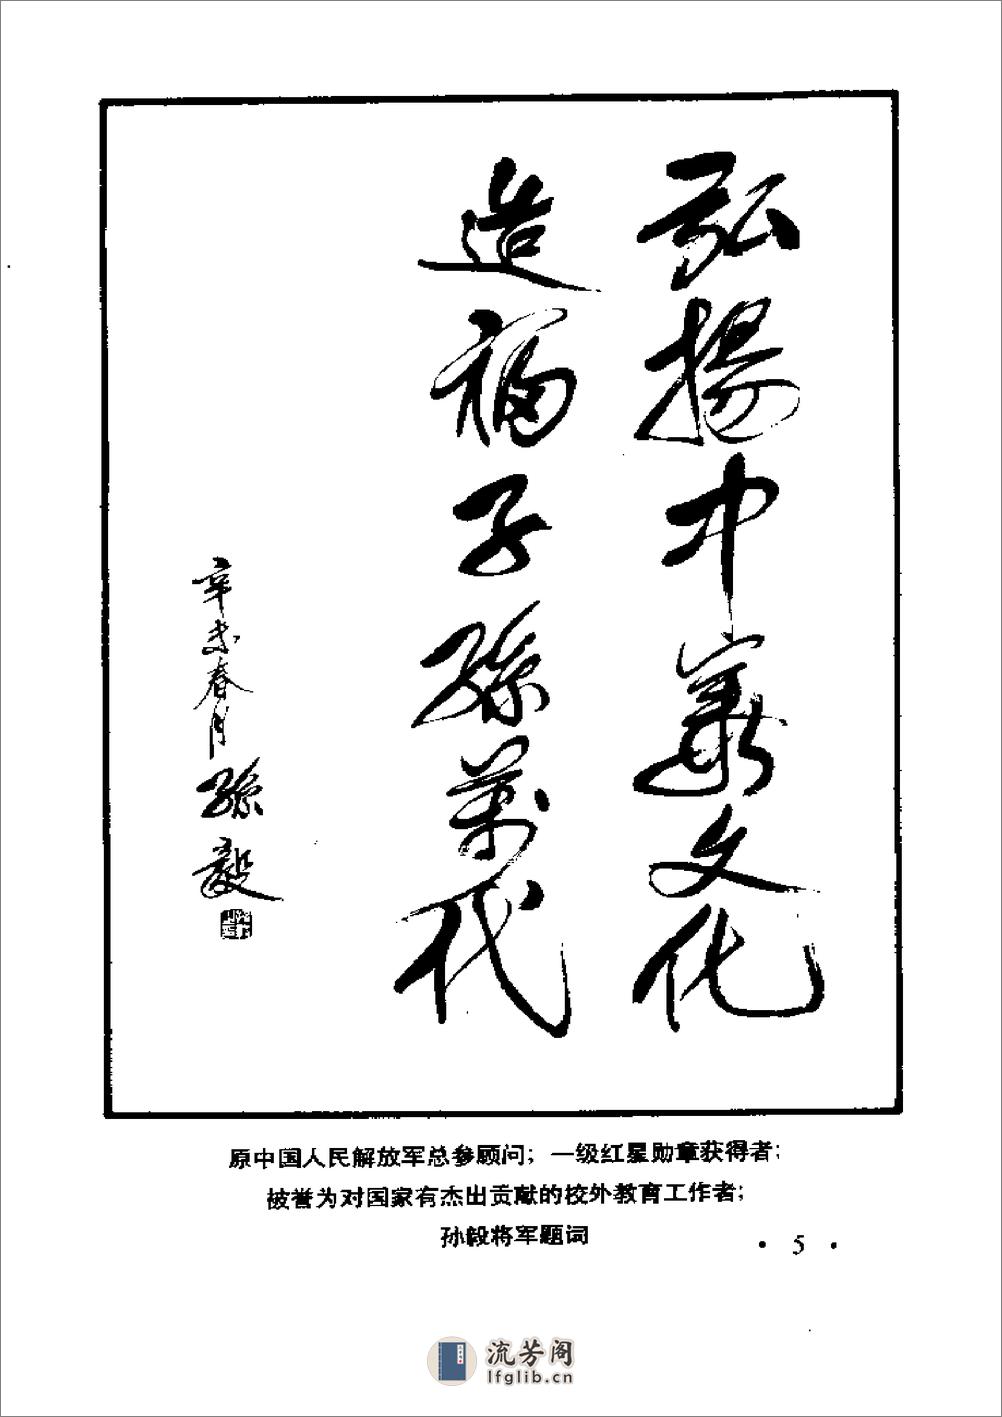 弘揚中華文化
造福子孫萬代
辛未春月孫毅
原中国人民解放军总参顾问；一级红星勋章获得者；
被誉为对国家有杰出贡献的校外教育工作者；
孙毅将军题词
· 5 ·
流芳阁
lfglib.cn